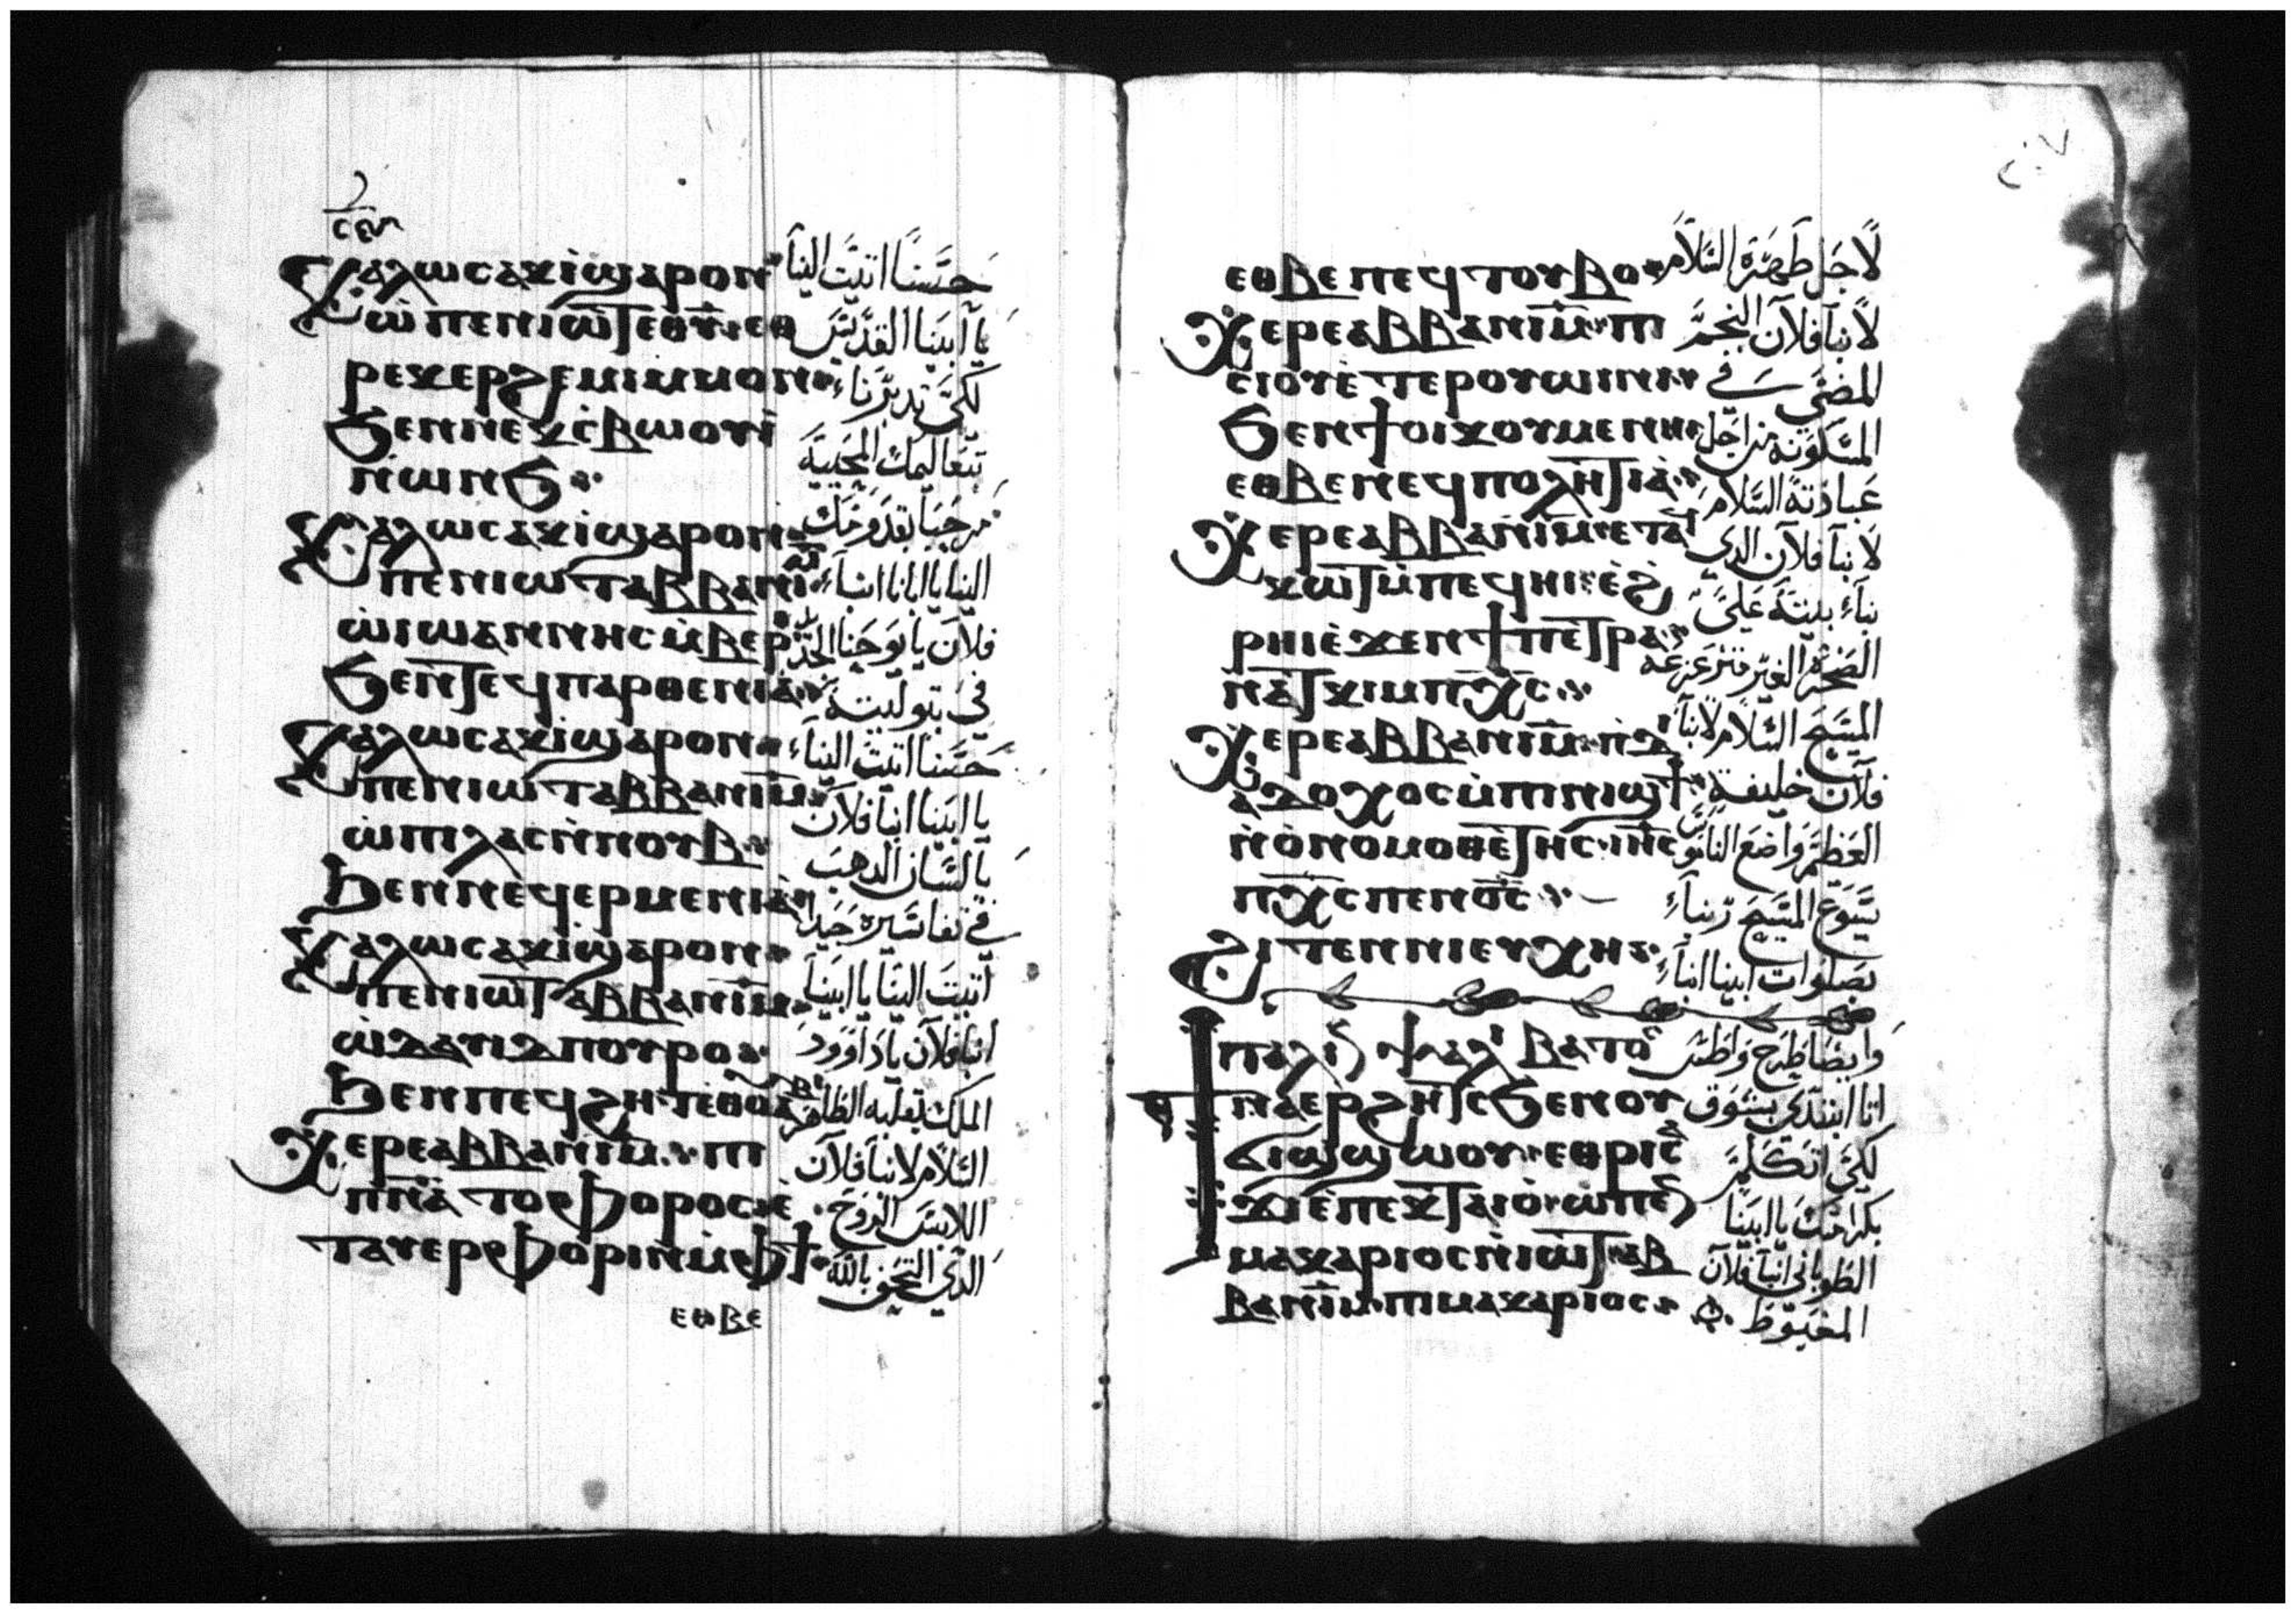 ⲕⲁⲗⲱⲥ ⲁⲕⲓ ϣⲁⲣⲟⲛ حسنًا اتيت الينا
ⲱ ⲡⲉⲛⲓⲱⲧ ⲉⲑⲩ ⲉⲑ يا ابينا القديس
ⲣⲉⲕⲉⲣϩⲉⲙⲓ ⲙⲙⲟⲛ لكى تدبرنا
ϧⲉⲛ ⲛⲉⲕⲥⲃⲱⲟⲩⲓ بتعاليمك المحييه
ⲛⲱⲛϧ
ⲕⲁⲗⲱⲥ ⲁⲕⲓ ϣⲁⲣⲟⲛ مرحبا بقدومك
ⲡⲉⲛⲓⲱⲧ ⲁⲃⲃⲁ ⲛⲓⲙ الينا يا ابانا انبا
ⲱ ⲓⲱⲁⲛⲛⲏⲥ ⲙⲃⲉⲣ فلان يا يوحنا
ϧⲉⲛ ⲧⲉϥⲡⲁⲣⲑⲉⲛⲓⲁ في بتوليته
ⲕⲁⲗⲱⲥ ⲁⲕⲓ ϣⲁⲣⲟⲛ حسنا اتيت الينا
ⲡⲉⲛⲓⲱⲧ ⲁⲃⲃⲁ ⲛⲓⲙ يا ابينا انبا فلان
ⲱ ⲡⲓⲗⲁⲥ ⲛⲛⲟⲩⲃ يا لسان الدهب
ϧⲉⲛ ⲛⲉϥⲉⲣⲙⲉⲛⲓⲁ في تفاسيره جيدا
ⲕⲁⲗⲱⲥ ⲁⲕⲓ ϣⲁⲣⲟⲛ اتيت الينا يا ابينا
ⲡⲉⲛⲓⲱⲧ ⲁⲃⲃⲁ ⲛⲓⲙ انبا فلان يا داوود
ⲱ ⲇⲁⲩⲓⲇ ⲡⲟⲩⲣⲟ الملك بقلبه الطاهر
ϧⲉⲛ ⲡⲉϥϩⲏⲧ ⲉⲑⲟⲩⲁⲃ
ⲭⲉⲣⲉ ⲁⲃⲃⲁ ⲛⲓⲙ ⲡⲓ السلام لانبا فلان
ⲡⲛⲁⲧⲟⲫⲟⲣⲟⲥ ⲉ اللابس الروح
ⲧⲁⲩⲉⲣⲫⲟⲣⲓⲛ ⲙⲫϯ الذي التحف بالله
ⲉⲑⲃⲉ
٢٠٧
ⲉⲑⲃⲉ ⲡⲉϥⲧⲟⲩⲃⲟ لاجل طهره السلام
ⲭⲉⲣⲉ ⲁⲃⲃⲁ ⲛⲓⲙ ⲡⲓ لانبا فلان النجم
ⲥⲓⲟⲩ ⲉⲧⲉⲣⲟⲩⲱⲓⲛⲓ المضي في
ϧⲉⲛ ϯⲟⲓⲕⲟⲩⲙⲉⲛⲏ المسكونه من اجل
ⲉⲑⲃⲉ ⲛⲉϥⲡⲟⲗⲏⲧⲓⲁ عبادته السلام
ⲭⲉⲣⲉ ⲁⲃⲃⲁ ⲛⲓⲙ ⲉⲧⲁϥ لانبا فلان الدى
ⲕⲱⲧ ⲙⲡⲉϥⲏⲓ ⲉϩ بناء بيته على
ⲣⲏⲓ ⲉϫⲉⲛ ϯⲡⲉⲧⲣⲁ الصخره الغير متزعزعه
ⲛⲁⲧⲕⲓⲙ ⲡⲭⲥ المسيح السلام لانبا
ⲭⲉⲣⲉ ⲁⲃⲃⲁ ⲛⲓⲙ ⲡⲇ فلان خليفة
ⲁⲇⲟⲭⲟⲥ ⲙⲡⲓⲛⲓϣϯ العظيم واضع الناموس
ⲛⲟⲛⲟⲙⲟⲑⲉⲧⲏⲥ ⲓⲏⲥ يسوع المسيح ربنا
ⲡⲭⲥ ⲡⲉⲛⲟⲥ
ϩⲓⲧⲉⲛ ⲛⲓⲉⲩⲭⲏ بصلوات ابينا انبا
ⲡⲁⲗⲓⲛ ⲯⲁⲗⲓ ⲃⲁⲧⲟⲥ وايضا طرح واطس
ϯⲛⲁⲉⲣϩⲏⲧⲥ ϧⲉⲛ ⲟⲩ انا ابتدى بشوق
ϭⲓϣϣⲱⲟⲩ ⲉⲑⲣⲓⲥⲁ لكى اتكلم
ϫⲓ ⲉⲡⲉⲕⲧⲁⲓⲟ ⲱ ⲡⲉⲛ بكرامتك يا ابينا
ⲙⲁⲕⲁⲣⲓⲟⲥ ⲛⲓⲱⲧ ⲁⲃ الطوباني انبا فلان
ⲃⲁ ⲛⲓⲙ ⲡⲓⲙⲁⲕⲁⲣⲓⲟⲥ المغبوط